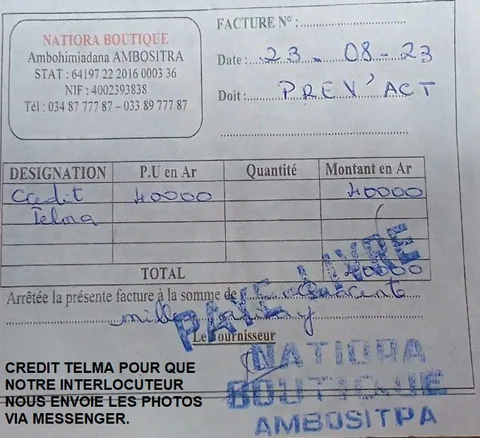 NATIORA BOUTIQUE
Ambohimiadana AMBOSITRA
STAT : 64197 22 2016 0003 36
NIF : 4002393838
Tél : 034 87 777 87 – 033 89 777 87
FACTURE N° :
Date : 23 - 08 - 23
Doit : PREV'ACT
DESIGNATION P.U en Ar Quantité Montant en Ar
Credit 40000 40000
Telma
TOTAL 40000
Arrêtée la présente facture à la somme de Quarante
mille Ariary
PAYE LIVRE
Le Fournisseur
NATIORA
BOUTIQUE
AMBOSITRA
CREDIT TELMA POUR QUE
NOTRE INTERLOCUTEUR
NOUS ENVOIE LES PHOTOS
VIA MESSENGER.